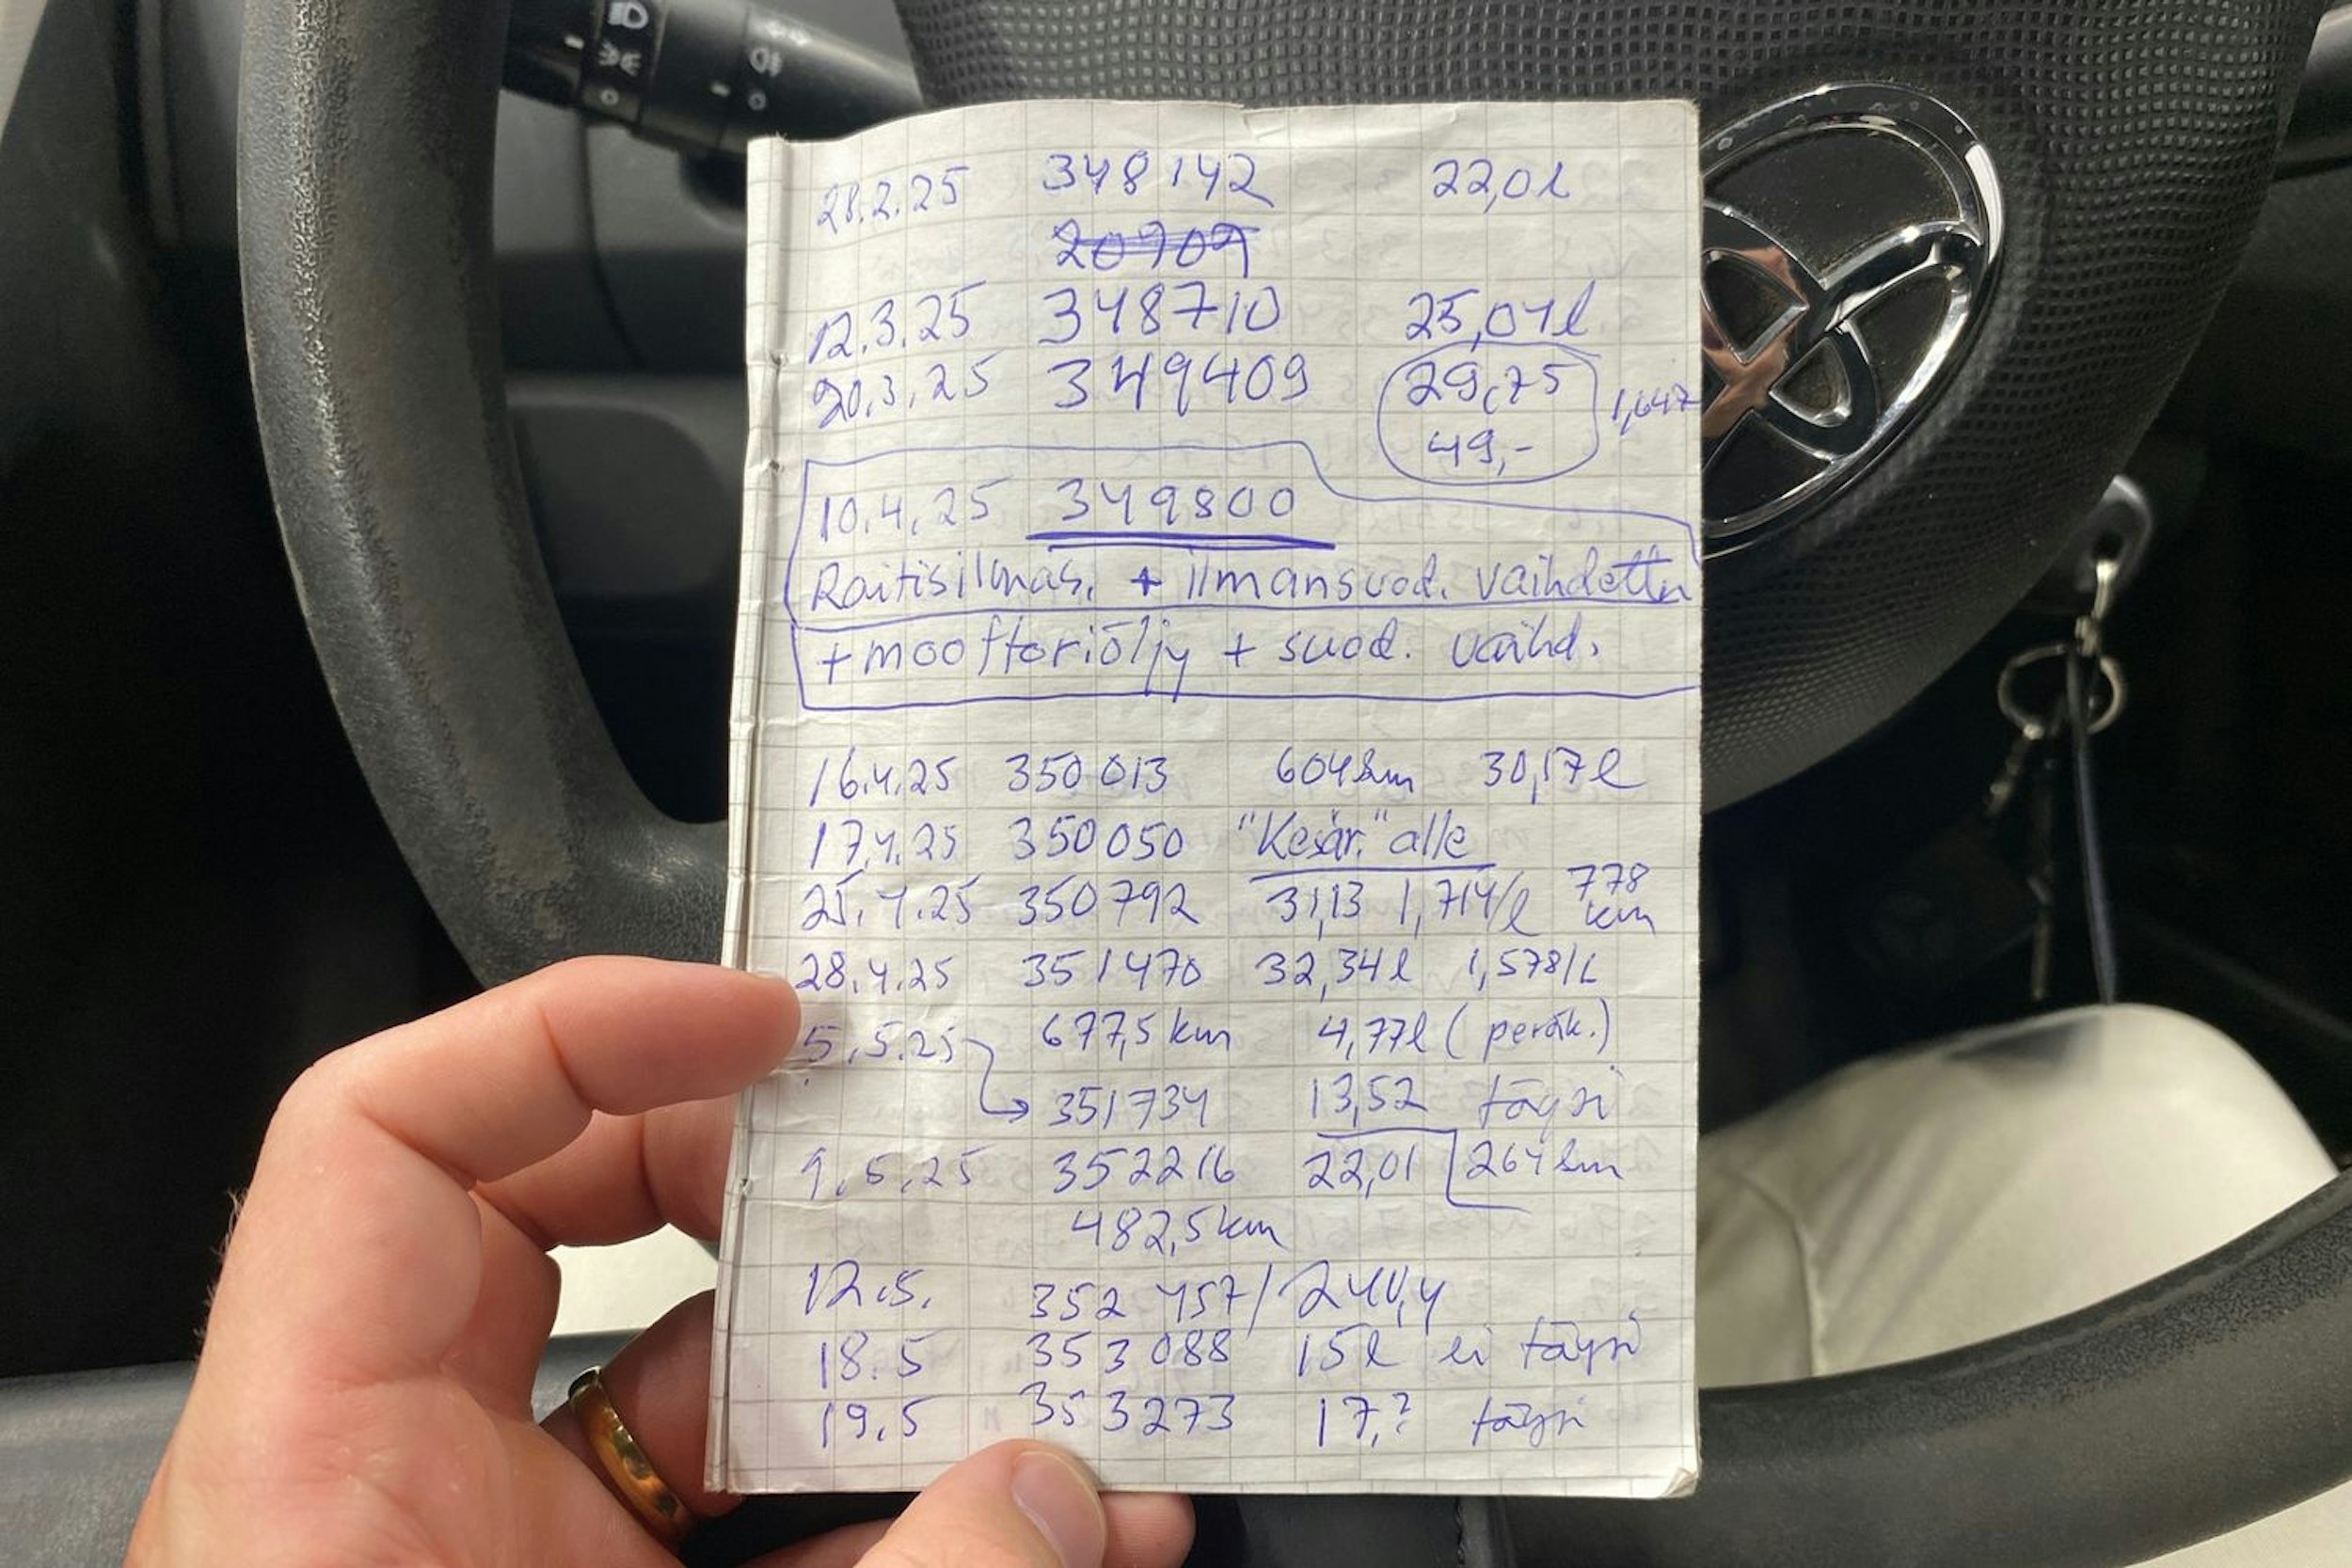 28.2.25 348142 22,0l
20909
12.3.25 348710 25,04l
20.3.25 349409 29,75 1,647
49,-
10.4.25 349800
Raitisilmas. + ilmansuod. vaihdettu
+moottoriöljy + suod. vaihd.
16.4.25 350013 604km 30,17l
17.4.25 350050 "Kesär." alle
25.4.25 350792 31,13 1,714/l 778 km
28.4.25 351470 32,34l 1,578/L
5.5.25 677,5 km 4,77l (peräk.)
351734 13,52 täysi
9.5.25 352216 22,01 264km
482,5km
12.5. 352 457/240,4
18.5 353 088 15l ei täysi
19.5 353273 17,? täysi